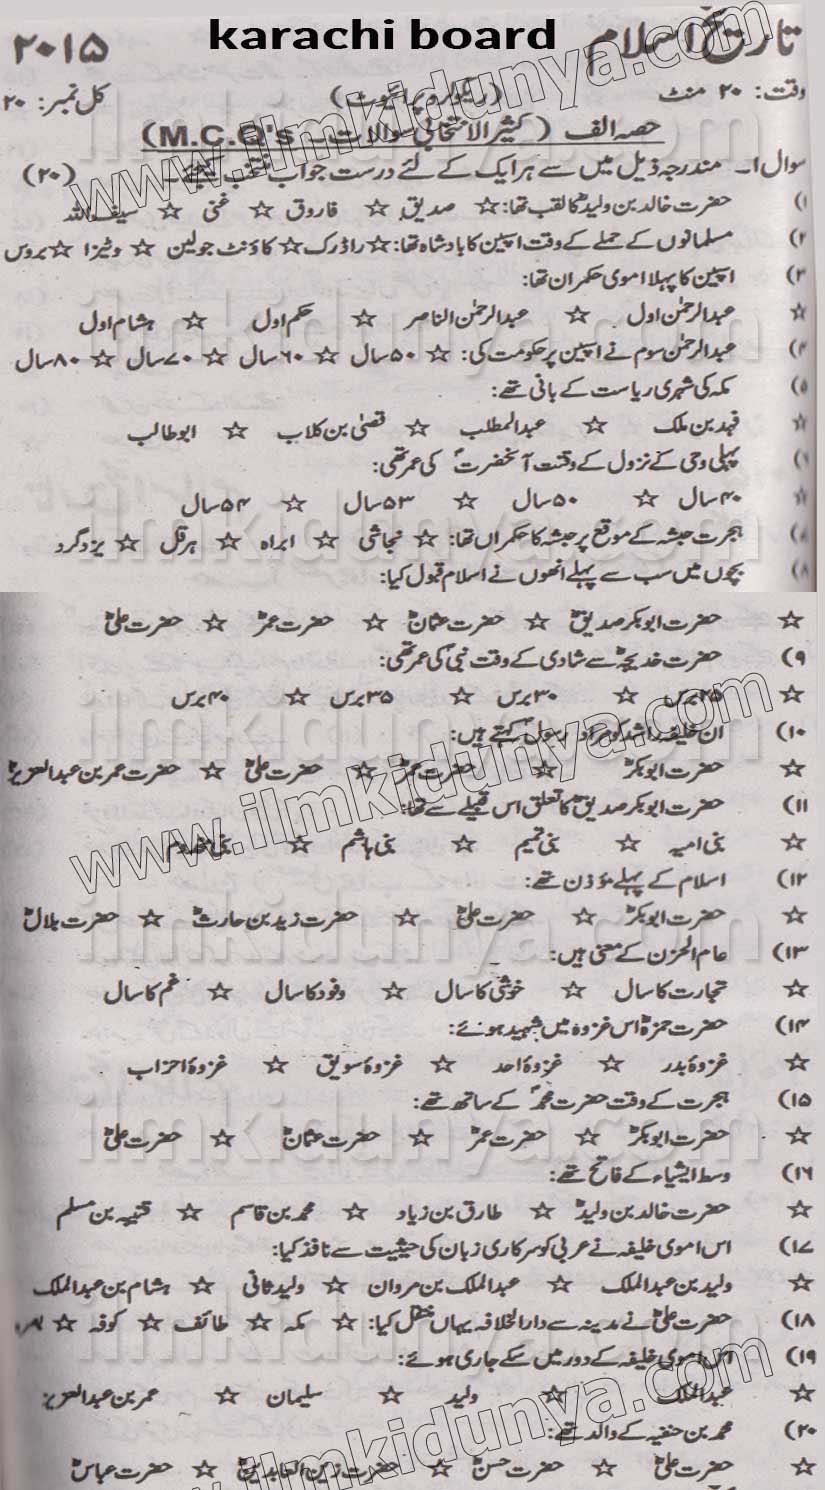 karachi board
تاریخ اسلام ۲۰۱۵
وقت: ۲۰ منٹ (ریگولر و پرائیوٹ) کل نمبر: ۲۰
حصہ الف (کثیر الانتخابی سوالات۔ M.C.Q's)
سوال ۱۔ مندرجہ ذیل میں سے ہر ایک کے لئے درست جواب منتخب کیجئے۔ (۲۰)
۱) حضرت خالد بن ولیدؓ کا لقب تھا: ☆ صدیق ☆ فاروق ☆ غنی ☆ سیف اللہ
۲) مسلمانوں کے حملے کے وقت اسپین کا بادشاہ تھا: ☆ راڈرک ☆ کاؤنٹ جولین ☆ وٹیزا ☆ بروس
۳) اسپین کا پہلا اموی حکمران تھا:
☆ عبدالرحمٰن اول ☆ عبدالرحمٰن الناصر ☆ حکم اول ☆ ہشام اول
۴) عبدالرحمٰن سوم نے اسپین پر حکومت کی: ☆ ۵۰ سال ☆ ۶۰ سال ☆ ۷۰ سال ☆ ۸۰ سال
۵) مکہ کی شہری ریاست کے بانی تھے:
☆ فہد بن ملک ☆ عبدالمطلب ☆ قصیٰ بن کلاب ☆ ابوطالب
۶) پہلی وحی کے نزول کے وقت آنحضرتؐ کی عمر تھی:
☆ ۴۰ سال ☆ ۵۰ سال ☆ ۵۳ سال ☆ ۵۴ سال
۸) ہجرت حبشہ کے موقع پر حبشہ کا حکمراں تھا: ☆ نجاشی ☆ ابراہ ☆ ہرقل ☆ یزدگرد
۸) بچوں میں سب سے پہلے انھوں نے اسلام قبول کیا:
☆ حضرت ابوبکر صدیقؓ ☆ حضرت عثمانؓ ☆ حضرت عمرؓ ☆ حضرت علیؓ
۹) حضرت خدیجہؓ سے شادی کے وقت نبیؐ کی عمر تھی:
☆ ۲۵ برس ☆ ۳۰ برس ☆ ۳۵ برس ☆ ۴۰ برس
۱۰) ان خلیفہ راشد کو مراد رسولؐ کہتے ہیں:
☆ حضرت ابوبکرؓ ☆ حضرت عمرؓ ☆ حضرت علیؓ ☆ حضرت عمر بن عبدالعزیزؒ
۱۱) حضرت ابوبکر صدیقؓ کا تعلق اس قبیلے سے تھا:
☆ بنی امیہ ☆ بنی تمیم ☆ بنی ہاشم ☆ بنی مخدوم
۱۲) اسلام کے پہلے مؤذن تھے:
☆ حضرت ابوبکرؓ ☆ حضرت علیؓ ☆ حضرت زید بن حارثؓ ☆ حضرت بلالؓ
۱۳) عام الحزن کے معنی ہیں:
☆ تجارت کا سال ☆ خوشی کا سال ☆ وفود کا سال ☆ غم کا سال
۱۴) حضرت حمزہؓ اس غزوہ میں شہید ہوئے:
☆ غزوۂ بدر ☆ غزوۂ احد ☆ غزوۂ سویق ☆ غزوۂ احزاب
۱۵) ہجرت کے وقت حضرت محمدؐ کے ساتھ تھے:
☆ حضرت ابوبکرؓ ☆ حضرت عمرؓ ☆ حضرت عثمانؓ ☆ حضرت علیؓ
۱۶) وسط ایشیاء کے فاتح تھے:
☆ حضرت خالد بن ولیدؓ ☆ طارق بن زیاد ☆ محمد بن قاسم ☆ قتیبہ بن مسلم
۱۷) اس اموی خلیفہ نے عربی کو سرکاری زبان کی حیثیت سے نافذ کیا:
☆ ولید بن عبدالملک ☆ عبدالملک بن مروان ☆ ولید ثانی ☆ ہشام بن عبدالملک
۱۸) حضرت علیؓ نے مدینہ سے دارالخلافہ یہاں منتقل کیا: ☆ مکہ ☆ طائف ☆ کوفہ ☆
۱۹) اس اموی خلیفہ کے دور میں سکے جاری ہوئے:
☆ عبدالملک ☆ ولید ☆ سلیمان ☆ عمر بن عبدالعزیز
۲۰) محمد بن حنفیہ کے والد تھے:
☆ حضرت علیؓ ☆ حضرت حسنؓ ☆ حضرت زین العابدینؓ ☆ حضرت عباسؓ
www.ilmkidunya.com
www.ilmkidunya.com
www.ilmkidunya.com
ilmkidunya.com
ilmkidunya.com
ilmkidunya.com
ilmkidunya.com
ilmkidunya.com
ilmkidunya.com
ilmkidunya.com